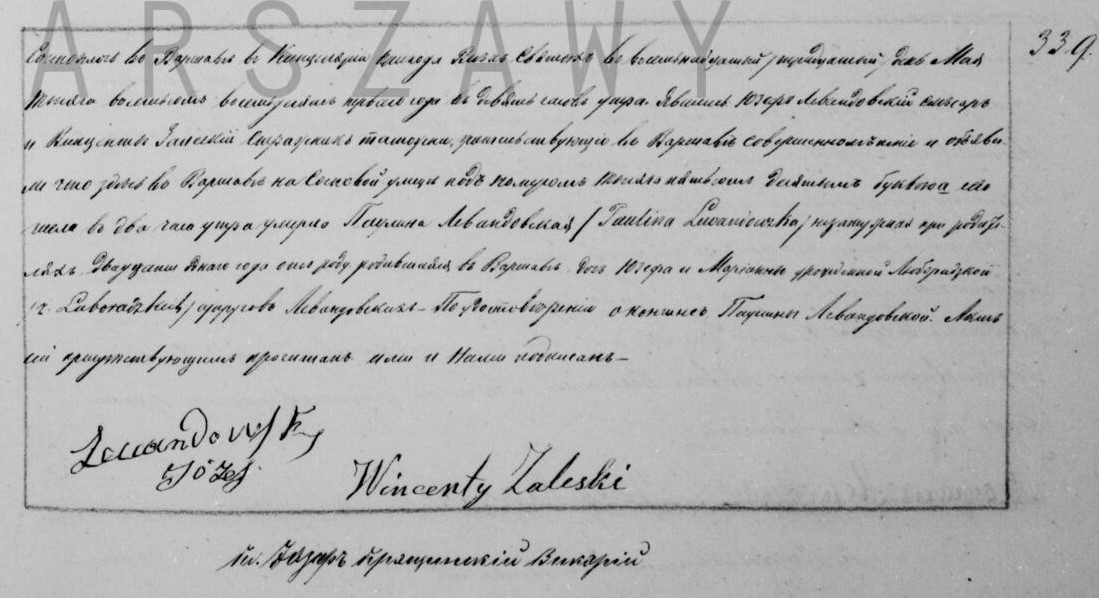 ARSZAWY
339.
Состоялось въ Варшавѣ въ Канцеляріи прихода Всѣхъ Святыхъ въ восемнадцатый /тридцатый/ день Мая
тысяча восемьсотъ восемдесятъ перваго года въ девять часовъ утра. Явились Юзефъ Левандовскій слесарь
и Винцентій Залескій Стражникъ таможни, жительствующіе въ Варшавѣ совершеннолѣтніе и объяви-
ли что здѣсь въ Варшавѣ на Сосновой улицѣ подъ номеромъ тысяча пятьсотъ десятымъ буквою а сего
числа въ два часа утра умерла Паулина Левандовская /Paulina Lewandowska/ незамужняя при родите-
ляхъ, Двадцати года отъ роду родившаяся въ Варшавѣ дочь Юзефа и Маріанны урожденной Люборадзкой
/z Luboradzkich/ супруговъ Левандовскихъ. По удостовѣреніи о кончинѣ Паулины Левандовской. Актъ
сей присутствующимъ прочитанъ ими и Нами подписанъ.—
Lewandowsky
Józef
Wincenty Zaleski
Кс. Викарій